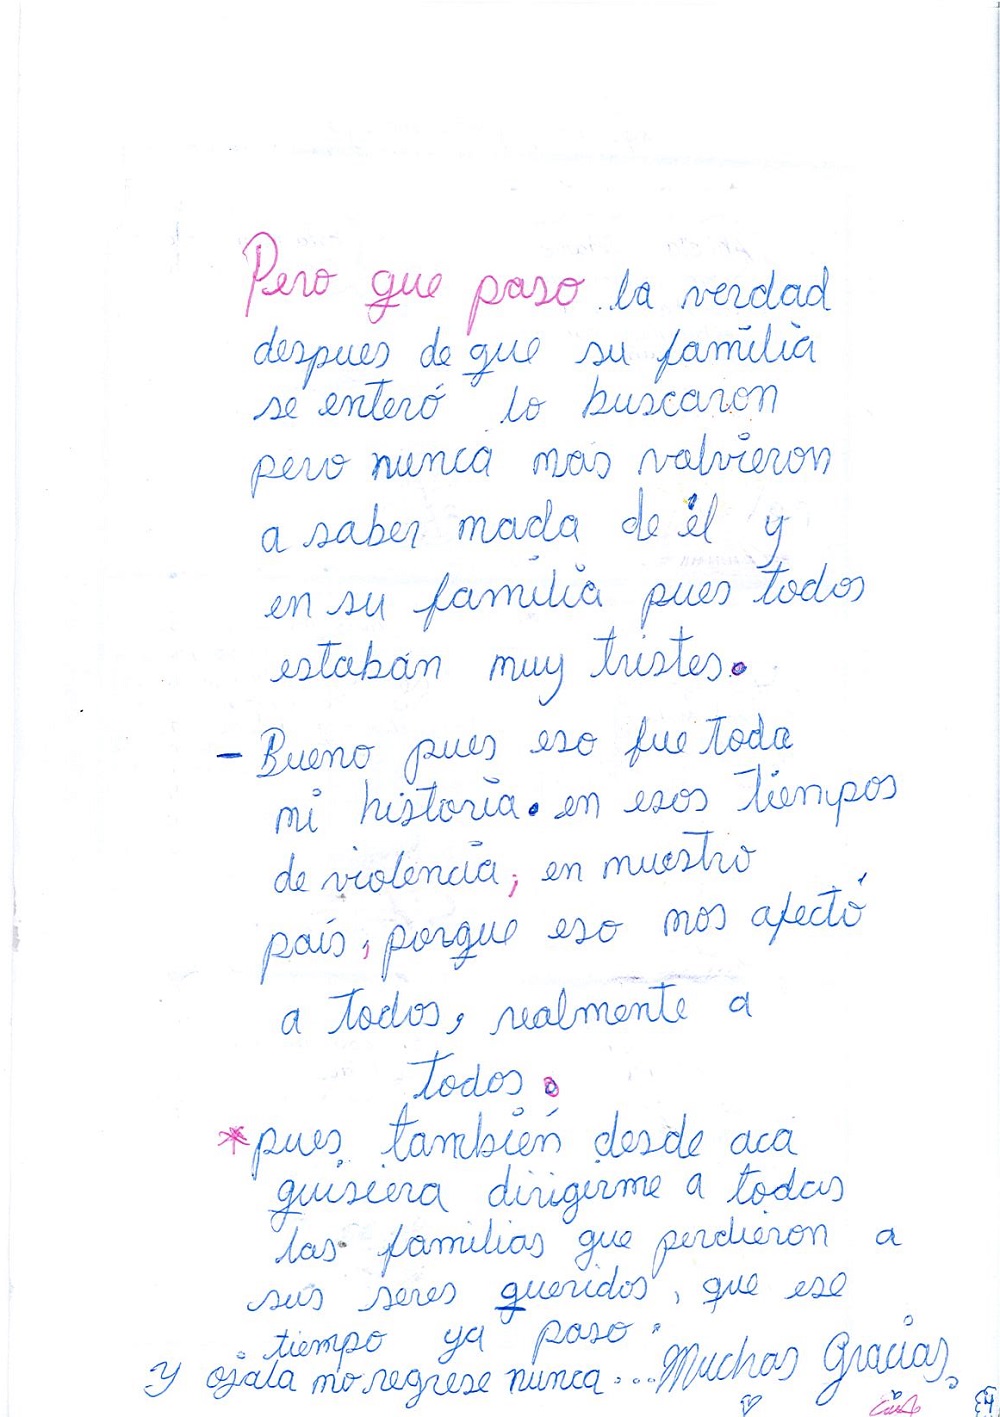 Pero que paso la verdad
despues de que su familia
se enteró lo buscaron
pero nunca mas volvieron
a saber nada de él y
en su familia pues todos
estaban muy tristes.
- Bueno pues eso fue toda
mi historia. en esos tiempos
de violencia; en nuestro
país, porque eso nos afectó
a todos, realmente a
todos.
* pues también desde aca
quisiera dirigirme a todas
las familias que perdieron a
sus seres queridos, que ese
tiempo ya paso.
Y ojala no regrese nunca... Muchas Gracias.
4